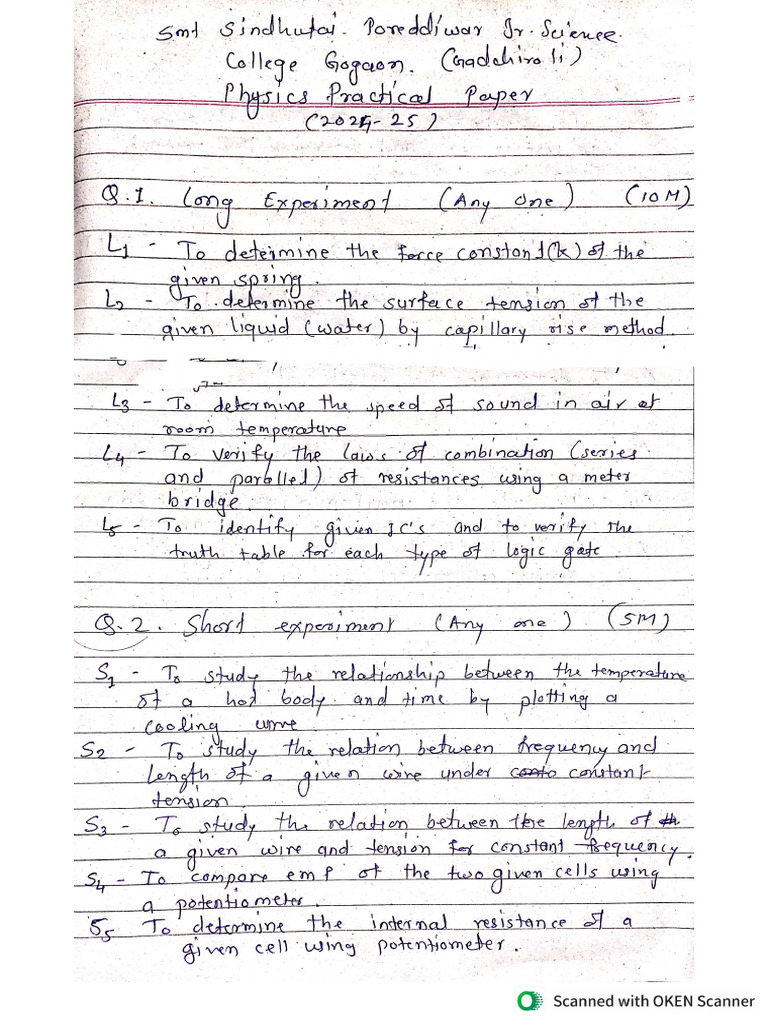 Smt Sindhutai. Poreddiwar Jr. Science.
College Gogaon. (Gadchiroli)
Physics Practical Paper
(2024-25)
Q.1. Long Experiment (Any One) (10M)
L1 - To determine the force constant (k) of the
given spring.
L2 - To determine the surface tension of the
given liquid (water) by capillary rise method
L3 - To determine the speed of sound in air at
room temperature
L4 - To verify the laws of combination (series
and parallel) of resistances using a meter
bridge.
L5 - To identify given IC's and to verify the
truth table for each type of logic gate
Q.2. Short experiment (Any one) (5M)
S1 - To study the relationship between the temperature
of a hot body and time by plotting a
cooling curve
S2 - To study the relation between frequency and
length of a given wire under constant
tension.
S3 - To study the relation between the length of
a given wire and tension for constant frequency.
S4 - To compare emf of the two given cells using
a potentiometer.
S5 To determine the internal resistance of a
given cell using potentiometer.
Scanned with OKEN Scanner